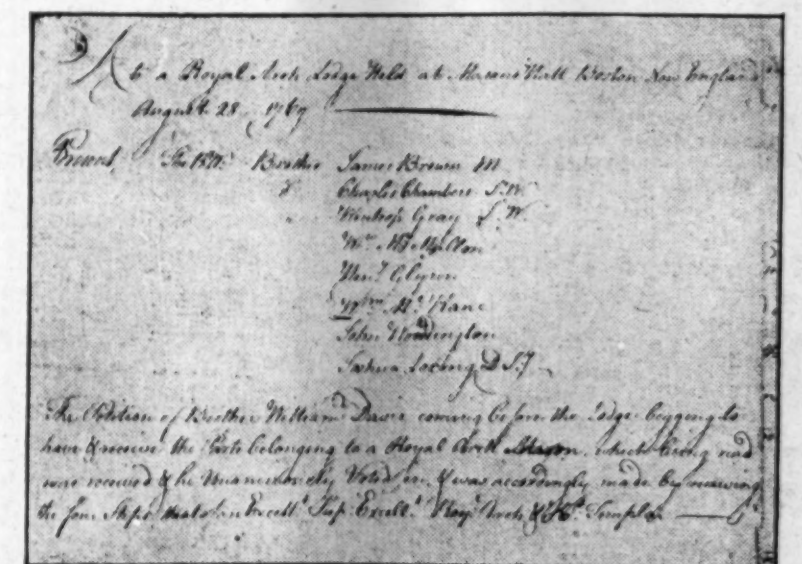 At a Royal Arch Lodge Held at Masons Hall Boston New England
August 28 1769
Present, The R.W. Brother James Brown M
Charles Chambers S.W.
Winthrop Gray J.W.
Wm. McMullon
Henry Glynn
Wm. McKane
John Woodington
Joshua Loring D S.T
The Petition of Brother William Davis coming before the Lodge begging to
have & receive the Parts belonging to a Royal Arch Mason, which being read
was received & he Unanimously Voted in, & was accordingly made by receiving
the four Steps, that of an Excellt. Sup. Excellt. Royl. Arch & Kt. Templar